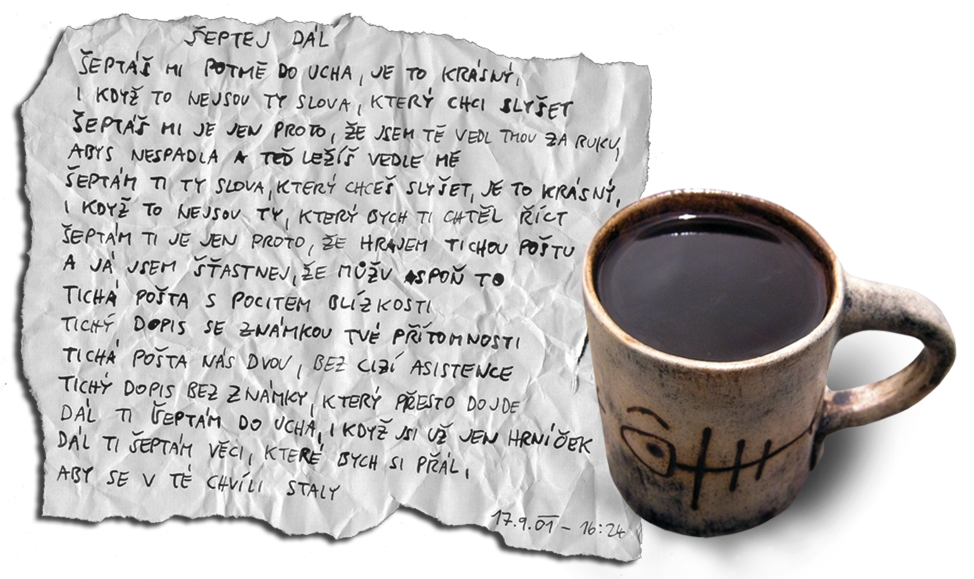 ŠEPTEJ DÁL
ŠEPTÁŠ MI POTMĚ DO UCHA, JE TO KRÁSNÝ,
I KDYŽ TO NEJSOU TY SLOVA, KTERÝ CHCI SLYŠET
ŠEPTÁŠ MI JE JEN PROTO, ŽE JSEM TĚ VEDL TMOU ZA RUKU,
ABYS NESPADLA A TEĎ LEŽÍŠ VEDLE MĚ
ŠEPTÁM TI TY SLOVA, KTERÝ CHCEŠ SLYŠET, JE TO KRÁSNÝ,
I KDYŽ TO NEJSOU TY, KTERÝ BYCH TI CHTĚL ŘÍCT
ŠEPTÁM TI JE JEN PROTO, ŽE HRAJEM TICHOU POŠTU
A JÁ JSEM ŠŤASTNEJ, ŽE MŮŽU ASPOŇ TO
TICHÁ POŠTA S POCITEM BLÍZKOSTI
TICHÝ DOPIS SE ZNÁMKOU TVÉ PŘÍTOMNOSTI
TICHÁ POŠTA NÁS DVOU, BEZ CIZÍ ASISTENCE
TICHÝ DOPIS BEZ ZNÁMKY, KTERÝ PŘESTO DOJDE
DÁL TI ŠEPTÁM DO UCHA, I KDYŽ JSI UŽ JEN HRNÍČEK
DÁL TI ŠEPTÁM VĚCI, KTERÉ BYCH SI PŘÁL,
ABY SE V TÉ CHVÍLI STALY
17.9.01 – 16:24